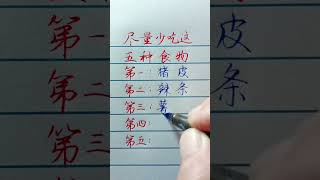 尽量少吃这
五种食物
第一：猪皮
第二：辣条
第三：薯
第四：
第五：